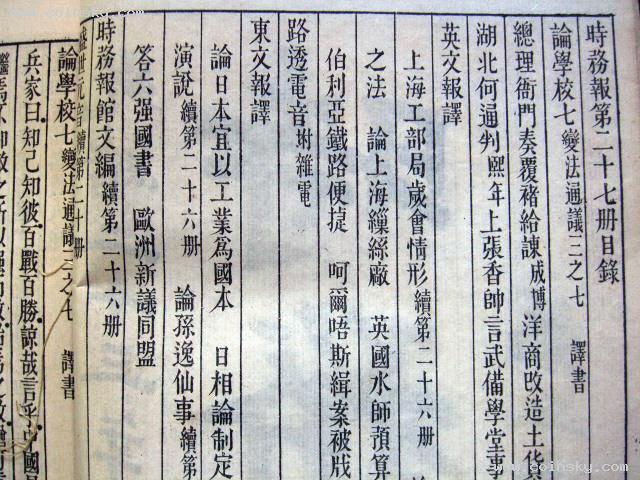 時務報第二十七册目錄
論學校七 變法通議三之七 譯書
總理衙門奏覆褚給諫成博 洋商改造土貨
湖北何通判熙年上張香帥言武備學堂事
英文報譯
上海工部局歲會情形續第二十六册
之法 論上海繅絲廠 英國水師預算
伯利亞鐵路便捷 呵爾唔斯緝案被戕
路透電音附雜電
東文報譯
論日本宜以工業爲國本 日相論制定
演說續第二十六册 論孫逸仙事續第
答六强國書 歐洲新議同盟
時務報館文編續第二十六册
盛世元音續第二十册
論學校七 變法通議三之七 譯書
兵家曰知己知彼百戰百勝諒哉言乎中國
www.coinsky.com